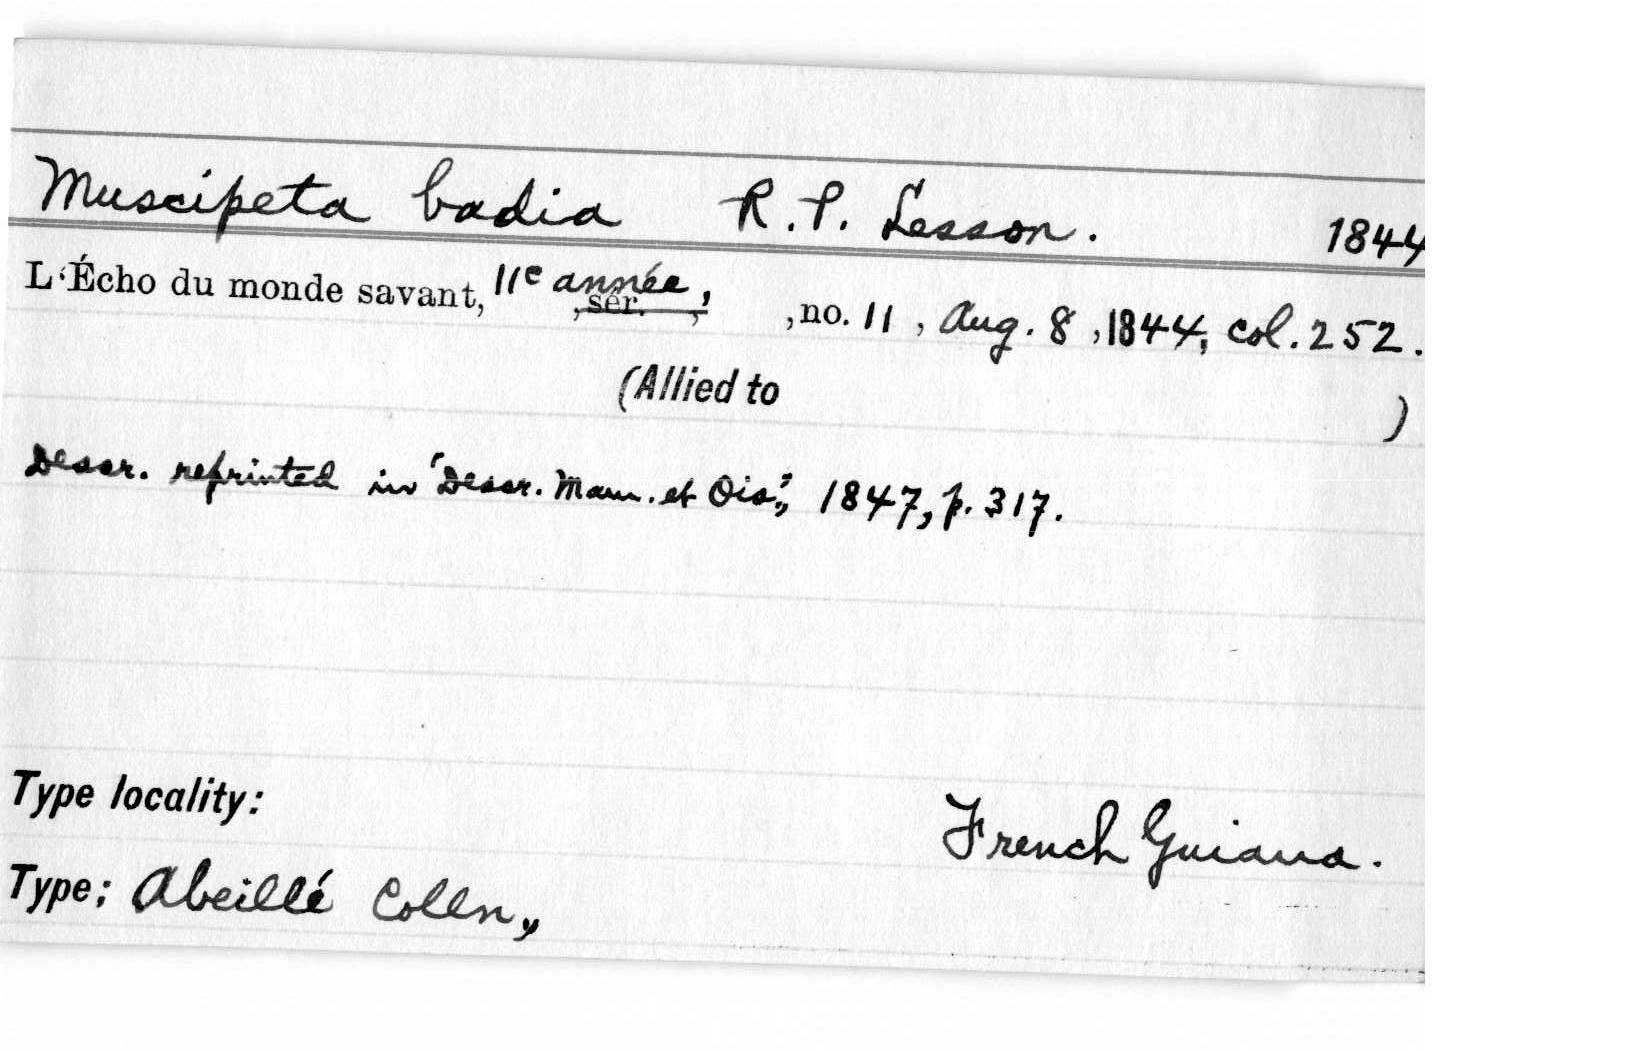 Muscipeta badia R. P. Lesson. 1844
L'Écho du monde savant, 11e année, ,sér. , ,no. 11 , Aug. 8 ,1844, col. 252.
(Allied to )
Descr. reprinted in "Descr. Mam. et Ois.", 1847, p. 317.
Type locality: French Guiana.
Type; Abeillé Colln.,